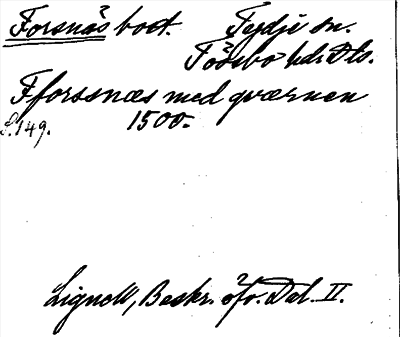 Forsnäs bost. Tydje sn.
Tössbo hd. Dls.
Fforssnæs med qværnen
S. 149. 1500.
Lignell, Beskr. öfv. Dal. II.